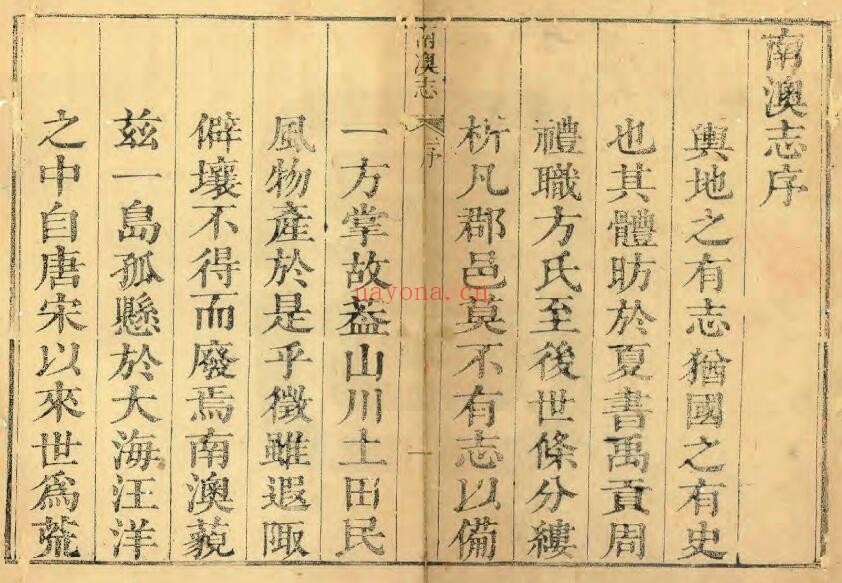 南澳志序
輿地之有志猶國之有史
也其體昉於夏書禹貢周
禮職方氏至後世條分縷
析凡郡邑莫不有志以備
南澳志 序 一
一方掌故葢山川土田民
風物產於是乎徵雖遐陬
僻壤不得而廢焉南澳藐
兹一島孤懸於大海汪洋
之中自唐宋以來世爲荒
nayona.cn